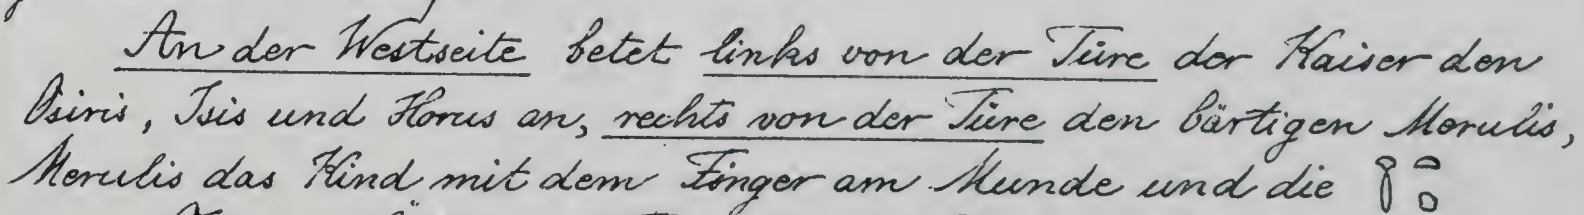 An der Westseite betet links von der Türe der Kaiser den
Osiris, Isis und Horus an, rechts von der Türe den bärtigen Merulis,
Merulis das Kind mit dem Finger am Munde und die